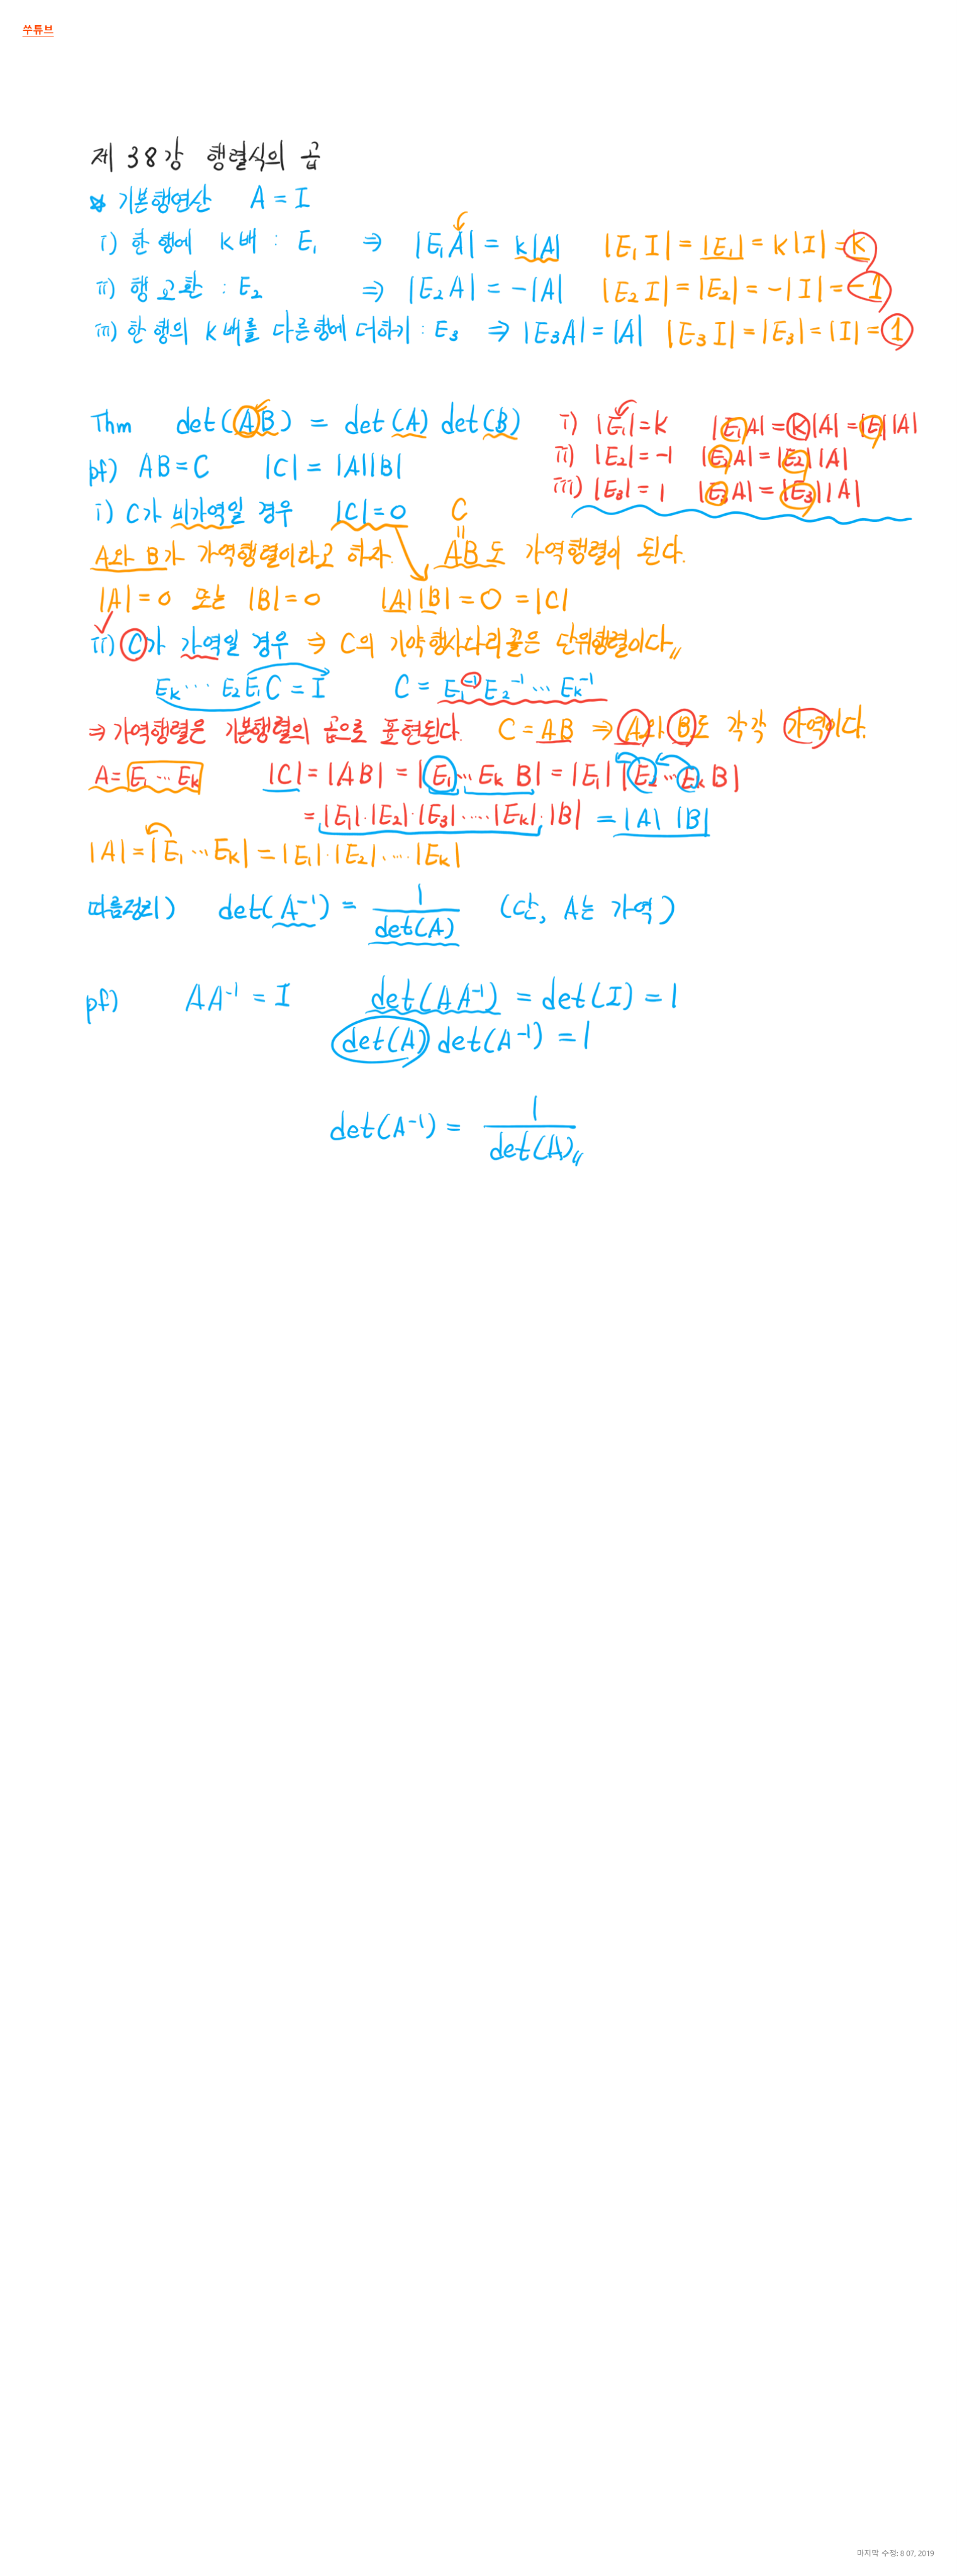 쑤튜브
제 38강 행렬식의 곱
☆ 기본행연산 A = I
i) 한 행에 k배 : E₁ ⇒ |E₁A| = k|A| |E₁I| = |E₁| = k|I| = k
ii) 행 교환 : E₂ ⇒ |E₂A| = -|A| |E₂I| = |E₂| = -|I| = -1
iii) 한 행의 k배를 다른행에 더하기 : E₃ ⇒ |E₃A| = |A| |E₃I| = |E₃| = |I| = 1
Thm det(AB) = det(A) det(B)
i) |E₁| = k |E₁A| = k|A| = |E₁||A|
pf) AB = C |C| = |A||B|
ii) |E₂| = -1 |E₂A| = |E₂||A|
iii) |E₃| = 1 |E₃A| = |E₃||A|
i) C가 비가역일 경우 |C| = 0 C
=
A와 B가 가역행렬이라고 하자. AB도 가역행렬이 된다.
|A| = 0 또는 |B| = 0 |A||B| = 0 = |C|
ii) C가 가역일 경우 ⇒ C의 기약행사다리꼴은 단위행렬이다.〃
Eₖ ⋯ E₂E₁C = I C = E₁⁻¹E₂⁻¹ ⋯ Eₖ⁻¹
⇒ 가역행렬은 기본행렬의 곱으로 표현된다. C = AB ⇒ A와 B도 각각 가역이다.
A = E₁ ⋯ Eₖ |C| = |AB| = |E₁ ⋯ Eₖ B| = |E₁| |E₂ ⋯ Eₖ B|
= |E₁|·|E₂|·|E₃|·⋯·|Eₖ|·|B| = |A| |B|
|A| = |E₁ ⋯ Eₖ| = |E₁|·|E₂|·⋯·|Eₖ|
따름정리) det(A⁻¹) = 1/det(A) (단, A는 가역)
pf) AA⁻¹ = I det(AA⁻¹) = det(I) = 1
det(A) det(A⁻¹) = 1
det(A⁻¹) = 1/det(A)〃
마지막 수정: 8 07, 2019